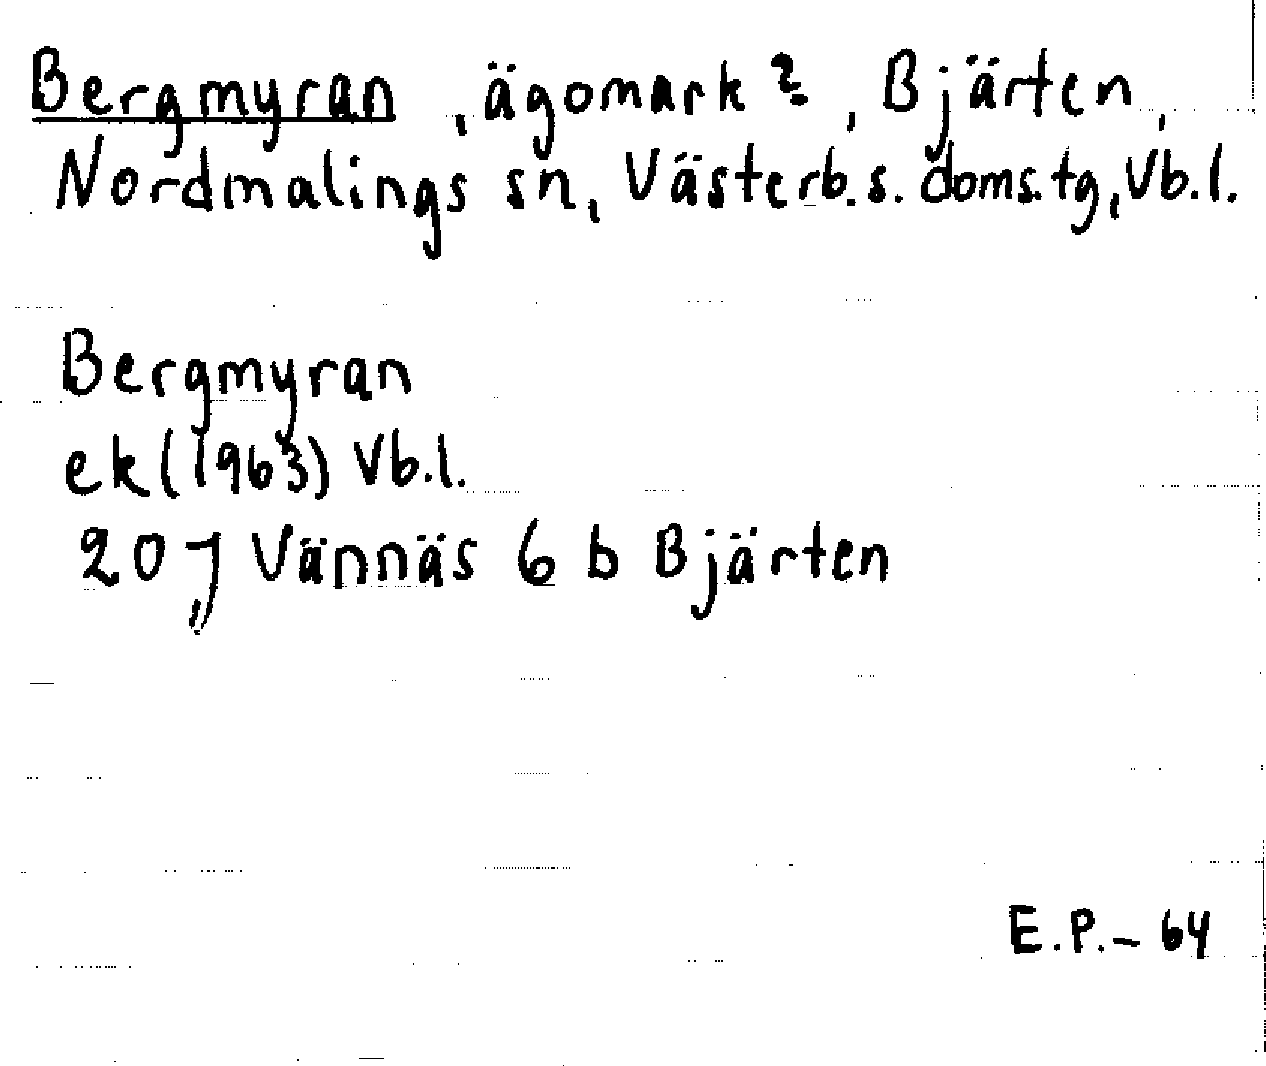 Bergmyran, ägomark?, Bjärten,
Nordmalings sn, Västerb.s. doms.tg, Vb.l.
Bergmyran
ek(1963) Vb.l.
20 J Vännäs 6 b Bjärten
E.P. – 64